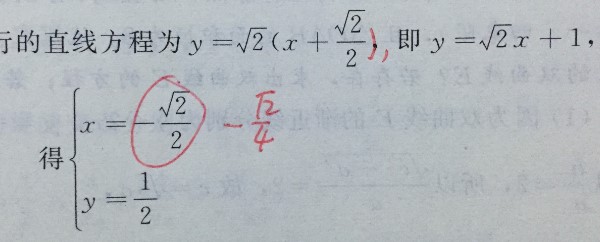 行的直线方程为 y=√2(x+√2/2), 即 y=√2x+1,
得{x=-√2/2 -√2/4
y=1/2